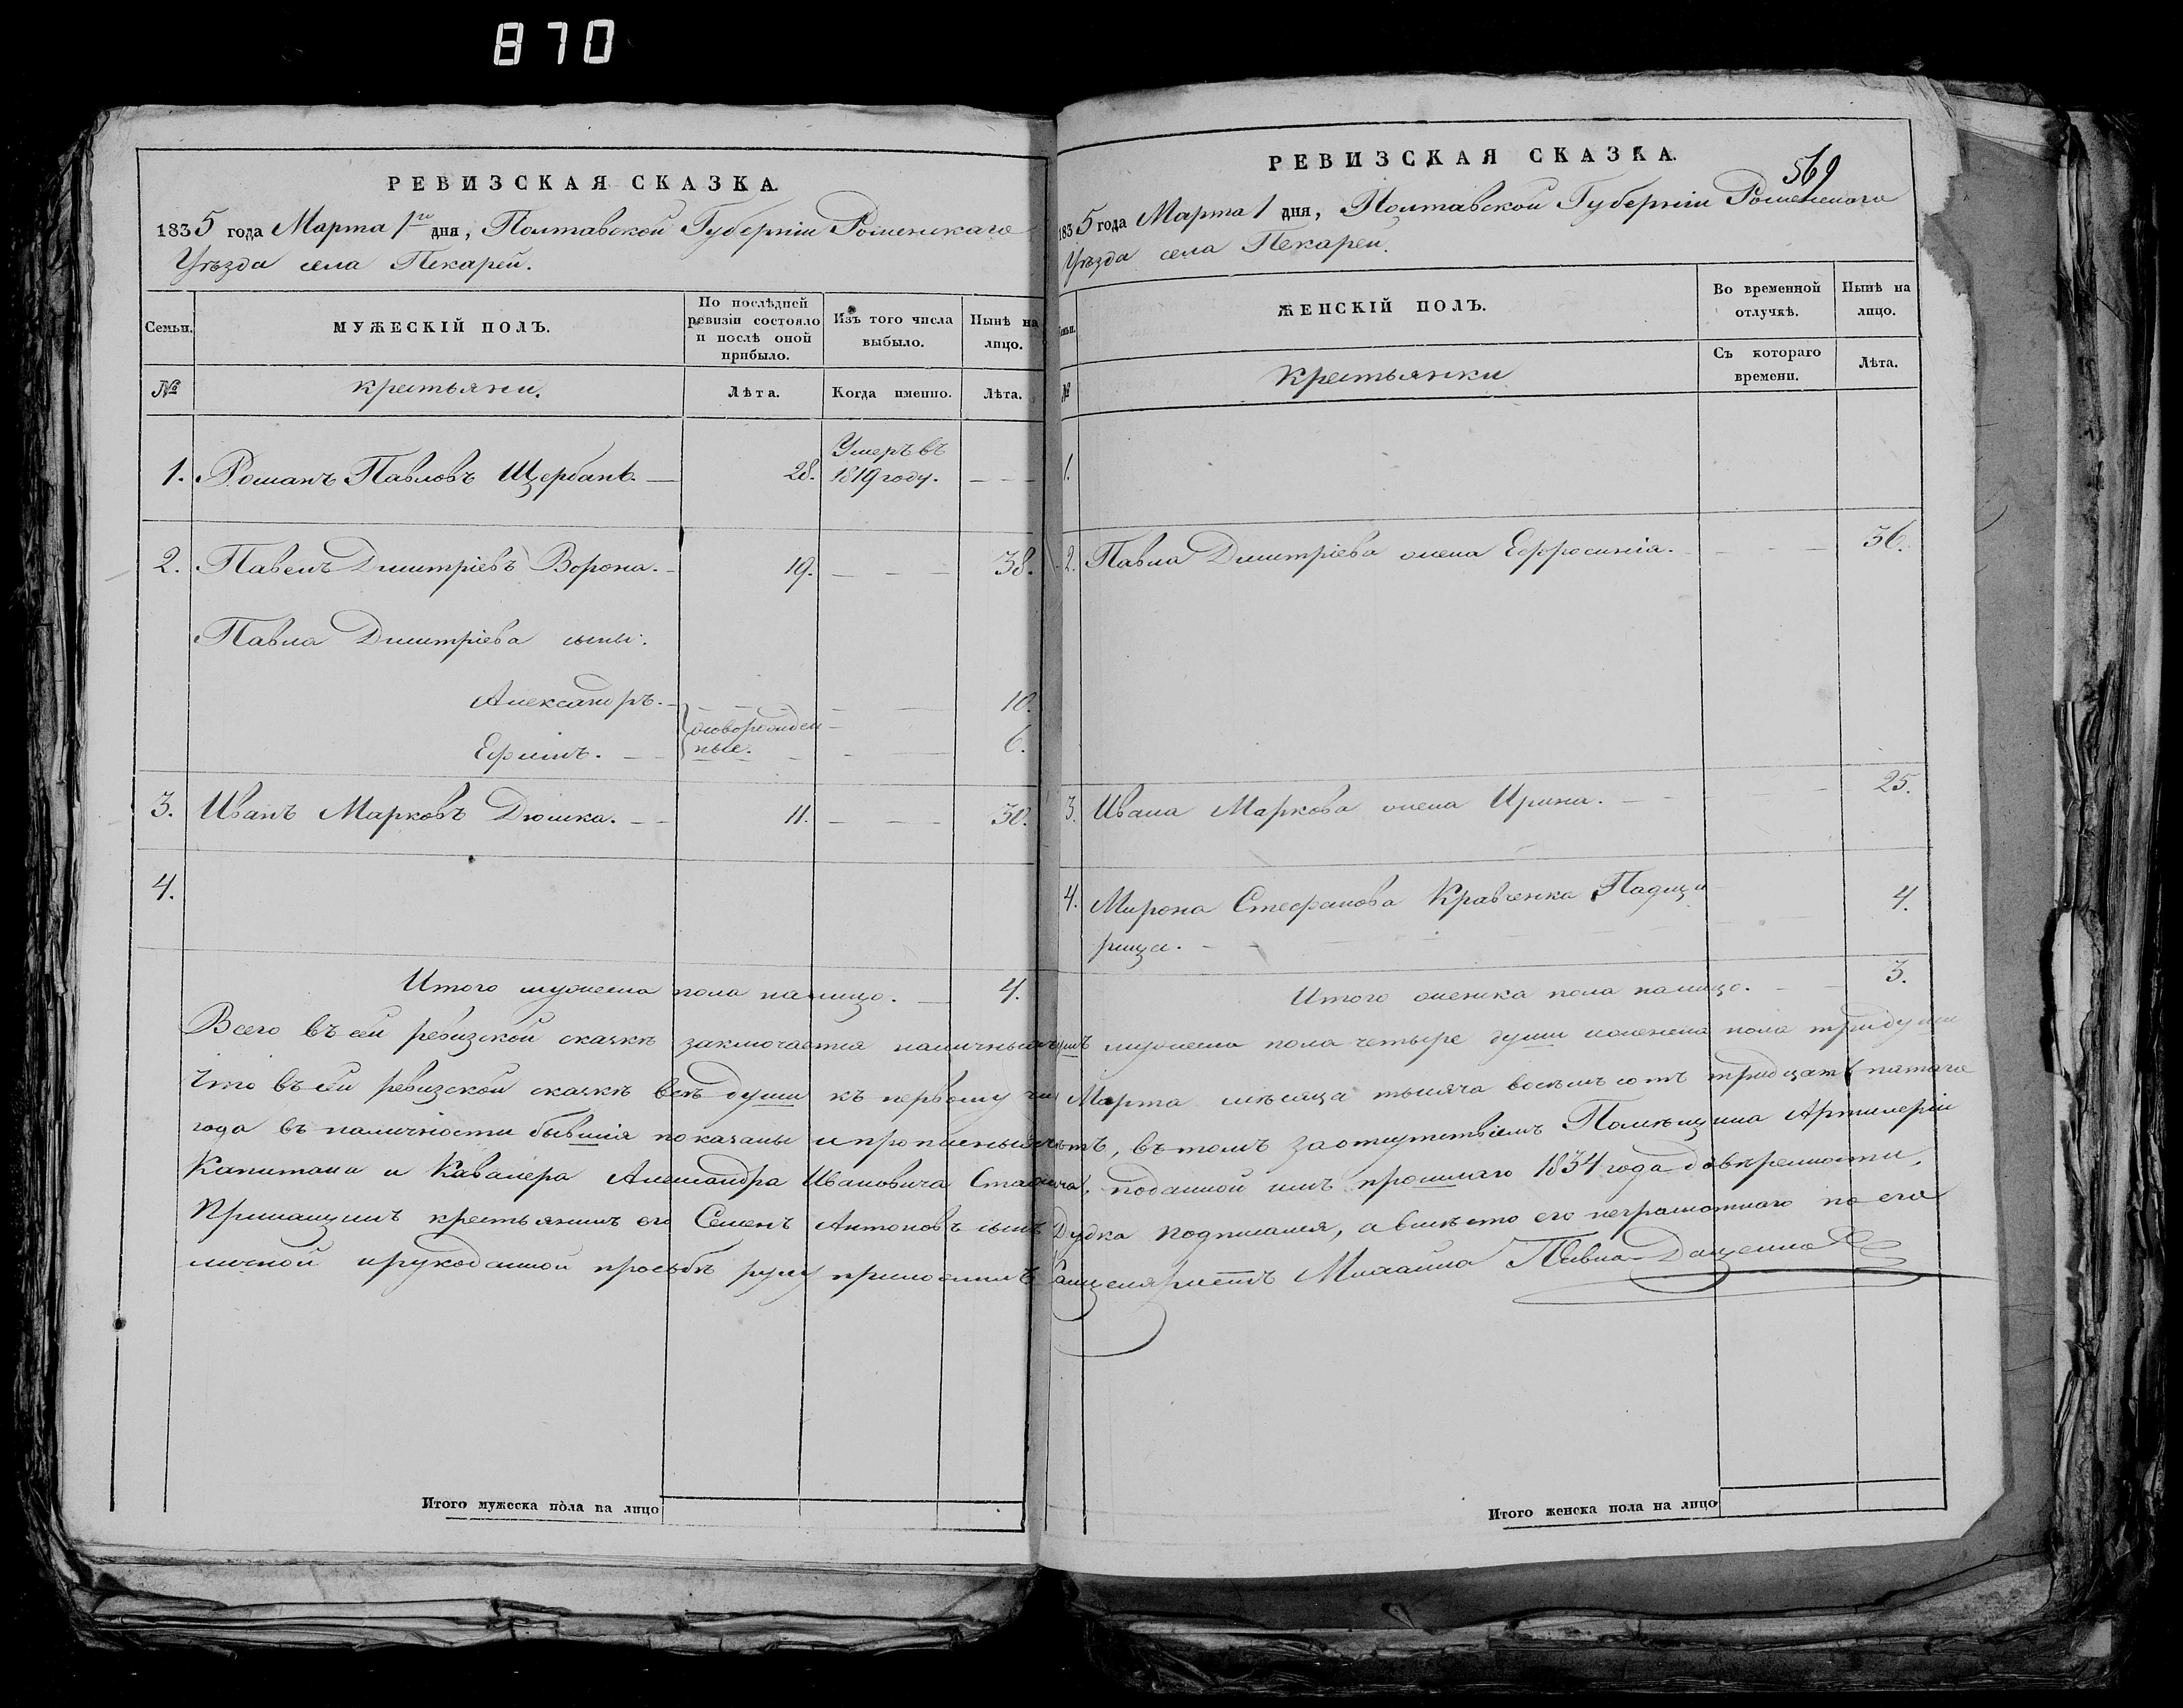 870
РЕВИЗСКАЯ СКАЗКА.
1835 года Марта 1го дня, Полтавской Губерніи Роменскаго
Уѣзда села Пекарей.
Семьи.
МУЖЕСКІЙ ПОЛЪ.
По послѣдней
ревизіи состояло
и послѣ оной
прибыло.
Изъ того числа
выбыло.
Нынѣ на
лицо.
№
крестьяни.
Лѣта.
Когда именно.
Лѣта.
Умеръ въ
1. Романъ Павловъ Щербань. 28. 1819 году.
2. Павелъ Дмитріевъ Ворона. 19. 38.
Павла Дмитріева сыны:
Александръ. 10.
новорожден
ные.
Ефимъ. 6.
3. Иванъ Марковъ Дюшка. 11. 30.
4.
Итого мужеска пола налицо. 4.
Всего въ сей ревизской сказкѣ заключается наличныхъ
Что въ сей ревизской сказкѣ всѣ души къ первому
года въ наличности бывшія показаны и прописныхъ
Капитана и Кавалера Александра Ивановича
крестьянинъ его Семенъ Антоновъ сынъ
личной и рукоданной прозьбѣ руку приложилъ
Итого мужеска пола на лицо
РЕВИЗСКАЯ СКАЗКА.
569
1835 года Марта 1 дня, Полтавской Губерніи Роменскаго
Уѣзда села Пекарей.
Семьи.
ЖЕНСКІЙ ПОЛЪ.
Во временной
отлучкѣ.
Нынѣ на
лицо.
№
Крестьянки
Съ котораго
времени.
Лѣта.
1.
2. Павла Дмитріева жена Ефросинія. 36.
3. Ивана Маркова жена Ирина. 25.
4. Мирона Стефанова Кравченка Падще
рица. 4.
Итого женска пола налицо. 3.
мужеска пола четыре души и женска пола три души
Марта мѣсяца тысяча восемъ сотъ тридцать пятаго
нѣтъ, въ томъ за отсутствіемъ Помѣщика Артилеріи
поданной имъ прошлаго 1834 года довѣренности,
Дудка подписался, а вмѣсто его неграмотнаго по его
Канцеляристъ Михаила Пивна-Даценко
Итого женска пола на лицо